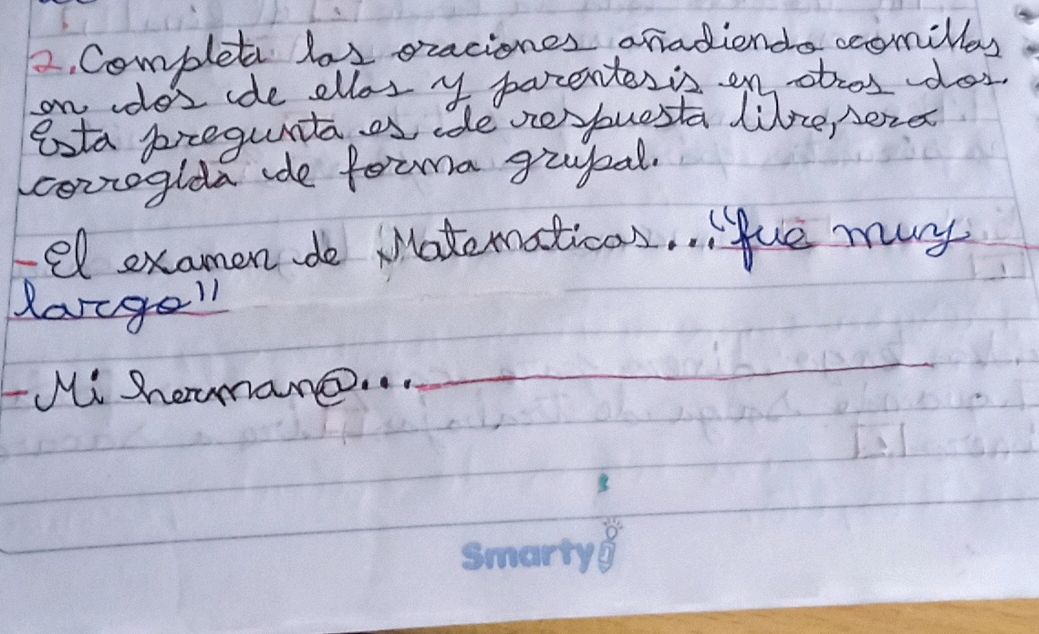 2. Completa las oraciones añadiendo comillas
en dos de ellas y parentesis en otras dos.
Esta pregunta es de respuesta libre, sera
corregida de forma grupal.
- El examen de Matematicas... "fue muy
largo"
- Mi herman@...
Smarty